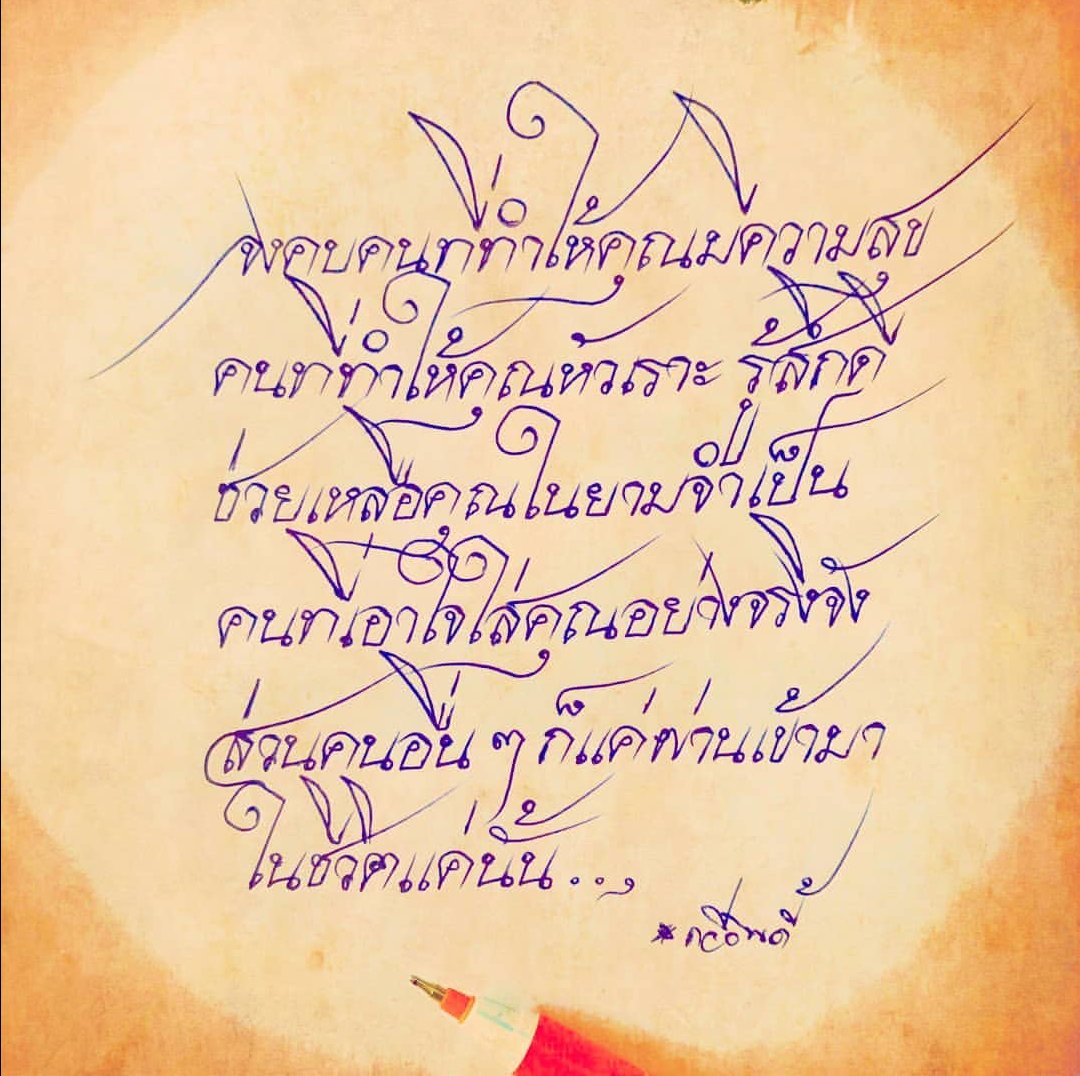 จงคบคนที่ทำให้คุณมีความสุข
คนที่ทำให้คุณหัวเราะ รู้สึกดี
ช่วยเหลือคุณในยามจำเป็น
คนที่เอาใจใส่คุณอย่างจริงจัง
ส่วนคนอื่น ๆ ก็แค่ผ่านเข้ามา
ในชีวิตแค่นั้น...